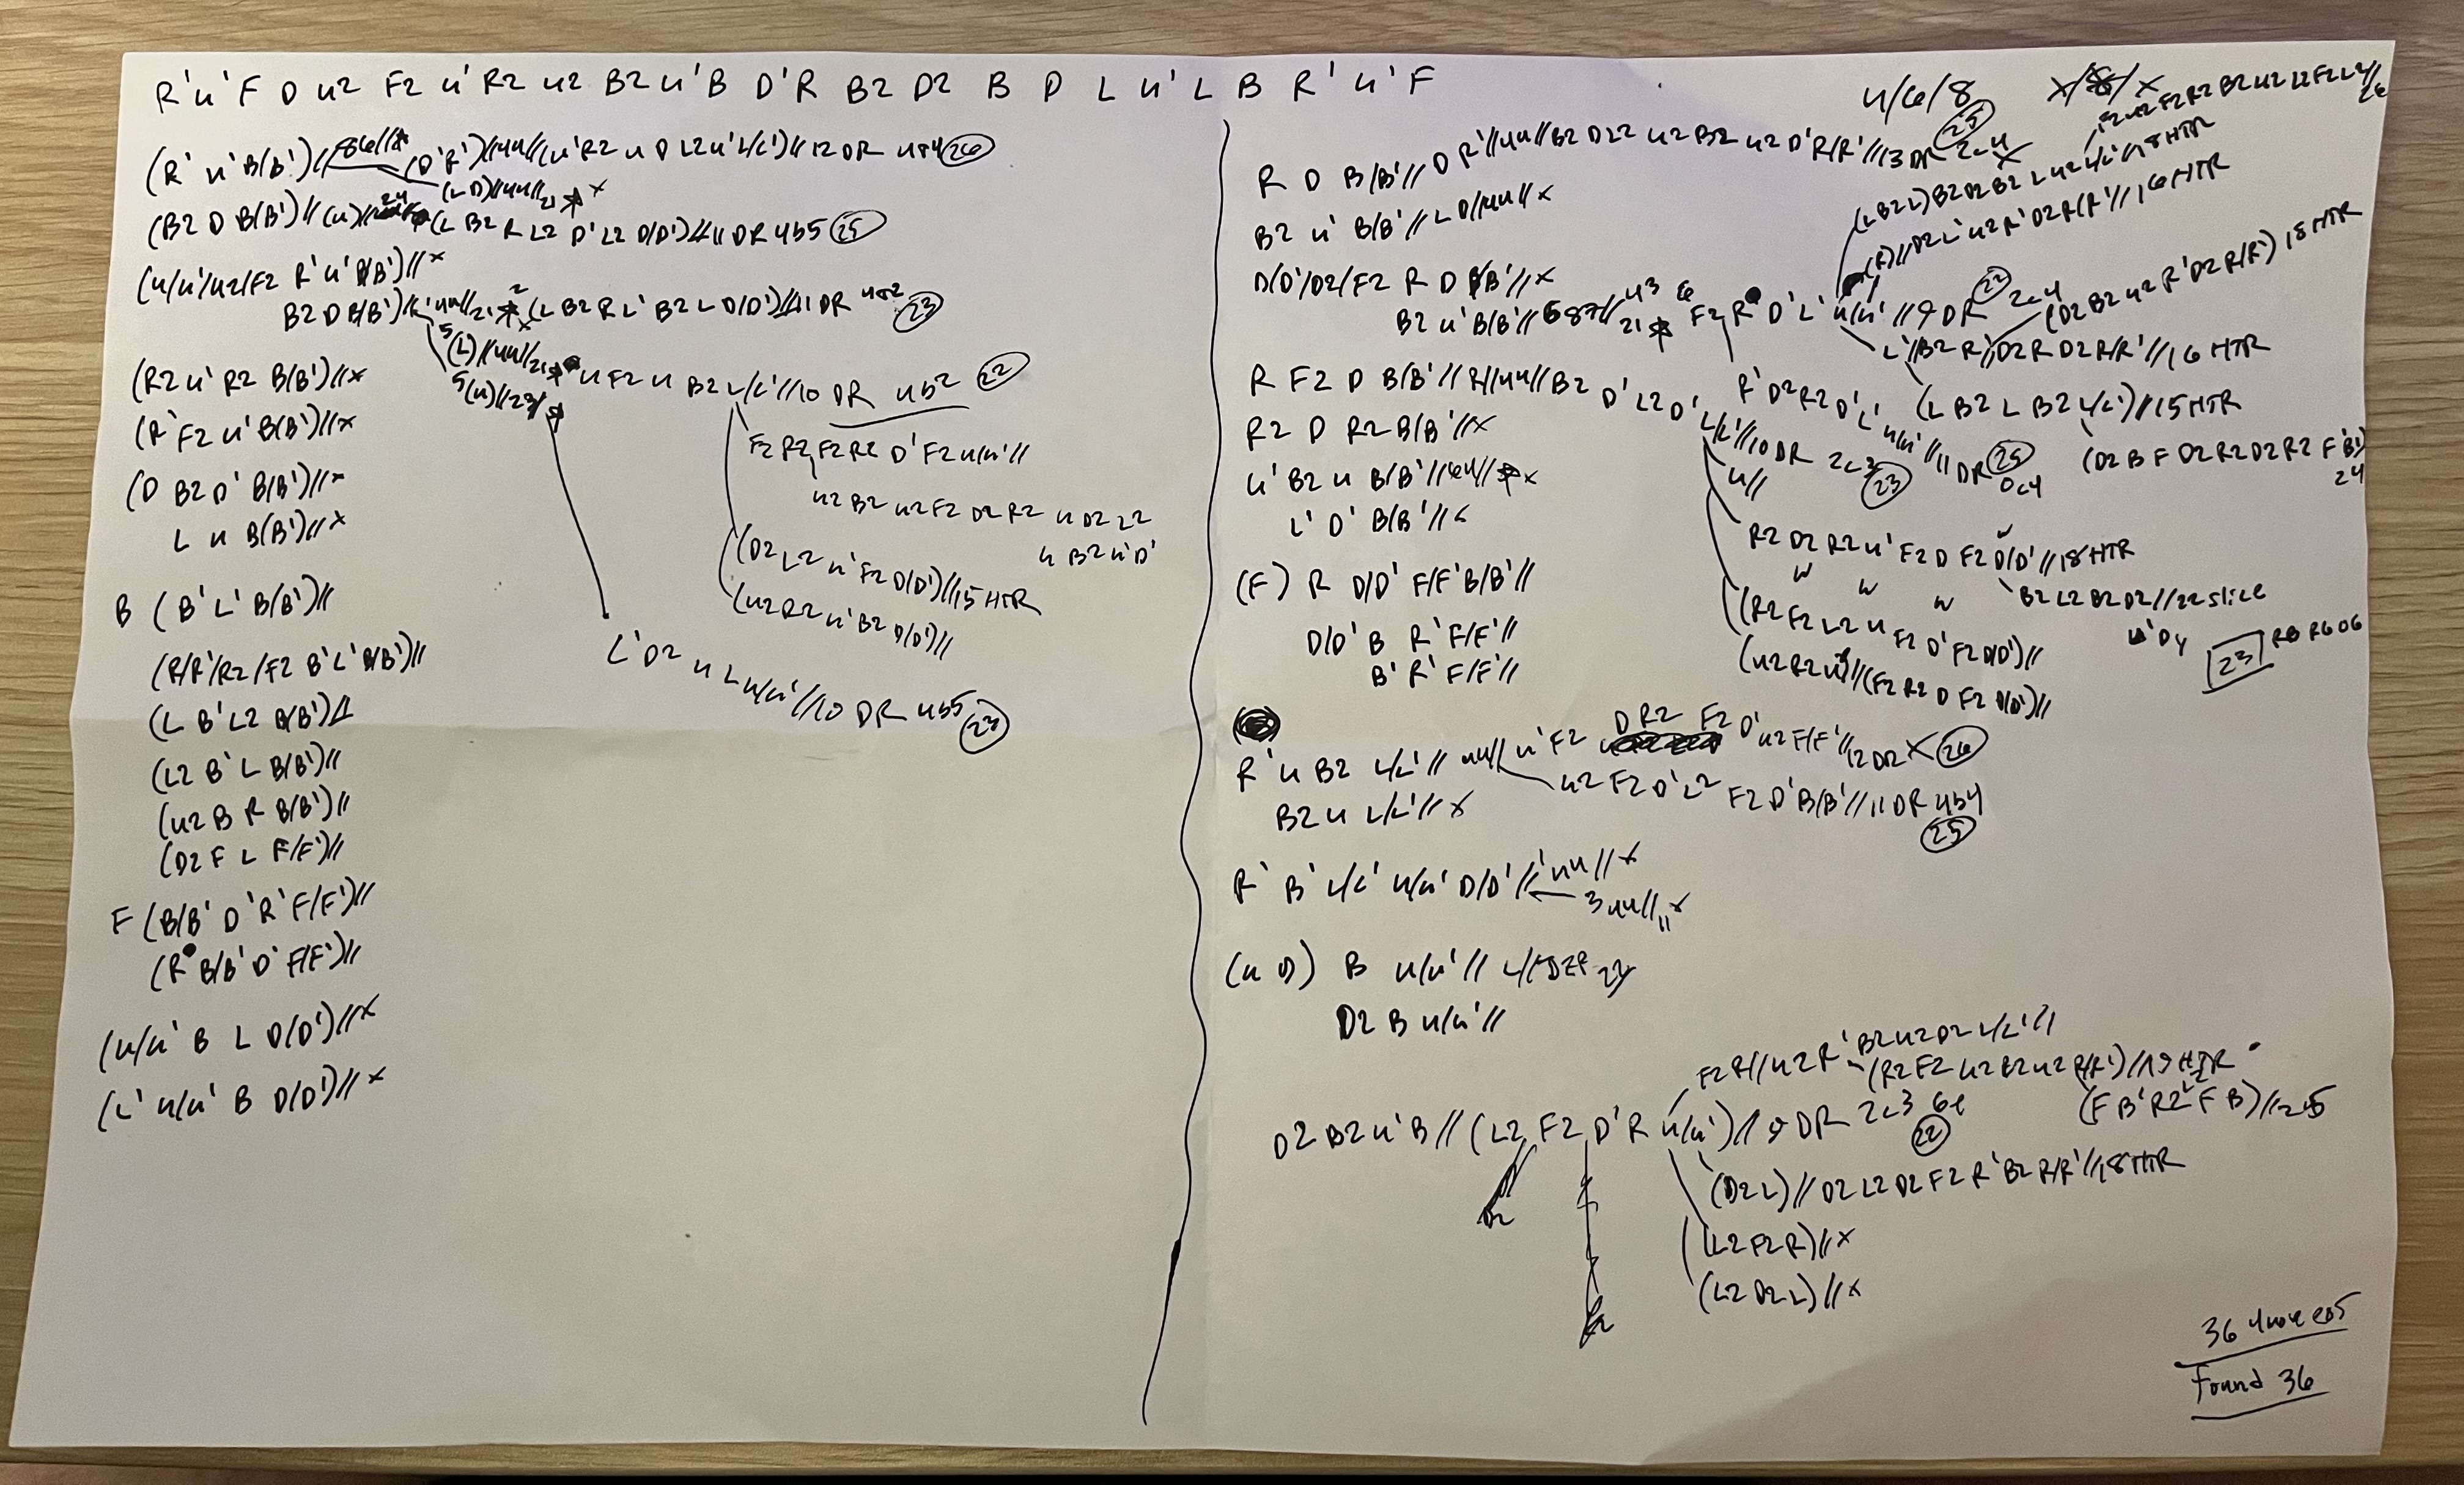 R' U' F D U2 F2 U' R2 U2 B2 U' B D' R B2 D2 B D L U' L B R' U' F
(R' U' B(B')// (D'R')//4U//(U'R2 U D L2 U' L/L')//12 DR 4b4 26
(L D)//4U// 21 x
(B2 D B(B')//(U)// 24 (L B2 R L2 D' L2 D/D')//11 DR 4b5 25
(U/U'/U2/F2 R' U' B/B')//x
B2 D B(B')// 21 (L B2 R L' B2 L D/D')//11 DR 4b2 23
5(L)//4U// 21 U F2 U B2 L/L'//10 DR 4b2 22
5(U)//23
(R2 U' R2 B(B')//x
(R' F2 U' B(B')//x
F2 R2 F2 R2 D' F2 U/U'//
U2 B2 U2 F2 D2 R2 U D2 L2
U B2 U' D'
(D B2 D' B(B')//x
L U B(B')//x
(D2 L2 U' F2 D/D')//15 HTR
(U2 R2 U' B2 D/D')//
B (B' L' B(B')//
(R/R'/R2/F2 B' L' B/B')//
L' D2 U L U/U'//10 DR 4b5 23
(L B' L2 B/B')//
(L2 B' L B(B')//
(U2 B R B(B')//
(D2 F L F/F')//
F (B/B' D' R' F/F')//
(R B/B' D' F/F')//
(U/U' B L D/D')//x
(L' U/U' B D/D')//x
4/6/8 x/8/x
R D B/B'// D R'//4U//B2 D L2 U2 B2 U2 D' R/R'//13 DR 2c4 25
B2 U' B/B'//L D//4U//x
F2 U2 F2 R2 B2 U2 L2 F2 L4// 26
(L B2 L) B2 D2 B2 L U2 L/L'//18 HTR
(R)//D2 L' U2 R' D2 R/R'//16 HTR
D/D'/D2/F2 R D B/B'//x
B2 U' B/B'// 21 F2 R D' L' U/U'//9 DR 2c4 22
(D2 B2 U2 R' D2 R/R') 18 HTR
L'//B2 R'//D2 R D2 R/R'//16 HTR
(L B2 L B2 L/L')//15 HTR
(D2 B F D2 R2 D2 R2 F' B')
24
R F2 D B/B'//R//4U//B2 D' L2 D' L/L'//10 DR 2c3 23
R' D2 R2 D' L' U/U'//11 DR 0c4 25
R2 D R2 B/B'//x
U' B2 U B/B'//64//x
L' D' B/B'//
U//
R2 D2 R2 U' F2 D F2 D/D'//18 HTR
B2 L2 B2 D2//22 slice
(R2 F2 L2 U F2 D' F2 D/D')//
(U2 R2 U')//(F2 R2 D F2 D/D')//
23
(F) R D/D' F/F' B/B'//
D/D' B R' F/F'//
B' R' F/F'//
R' U B2 L/L'// 4U// U' F2 D R2 F2 D' U2 F/F'//12 DR x 26
U2 F2 D' L2 F2 D' B/B'//11 DR 4b4 25
B2 U L/L'//x
R' B' L/L' U/U' D/D'// 4U//x
3 4U// 11 x
(U D) B U/U'//
D2 B U/U'//
F2 R//U2 R' B2 U2 D2 L/L'//
(R2 F2 U2 B2 U2 R/R')//19 HTR
(F B' R2 L2 F B)//25
D2 B2 U' B//(L2 F2 D' R U/U')//9 DR 2c3 6e 22
(D2 L)//D2 L2 D2 F2 R' B2 R/R'//18 HTR
(L2 F2 R)//x
(L2 D2 L)//x
36 4move eos
Found 36